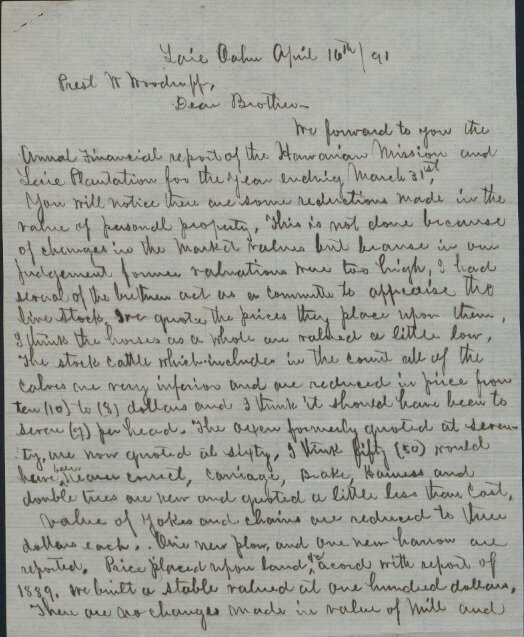 Laie Oahu April 16th/91
Prest W Woodruff,
Dear Brother—
We forward to you the
Annual Financial report of the Hawaiian Mission and
Laie Plantation for the year ending March 31st,
You will notice there are some reductions made in the
value of personal property, This is not done because
of changes in the market values but because in our
judgement former valuations were too high, I had
several of the brethren act as a committe to appraise the
live stock, we quote the prices they place upon them,
I think the horses as a whole are valued a little low,
The stock cattle which includes in the count all of the
calves are very inferior and are reduced in price from
ten (10) to (8) dollars and I think it should have been to
seven (7) per head. The oxen formerly quoted at seven-
ty, are now quoted at sixty, I think fifty (50) would
have been nearer correct, Carriage, Brake, Harness and
double trees are new and quoted a little less than cost,
Value of Yokes and chains are reduced to three
dollars each.. One new plow, and one new harrow are
reported. Price placed upon land, acord with report of
1889. We built a stable valued at one hundred dollars,
There are no changes made in value of Mill and